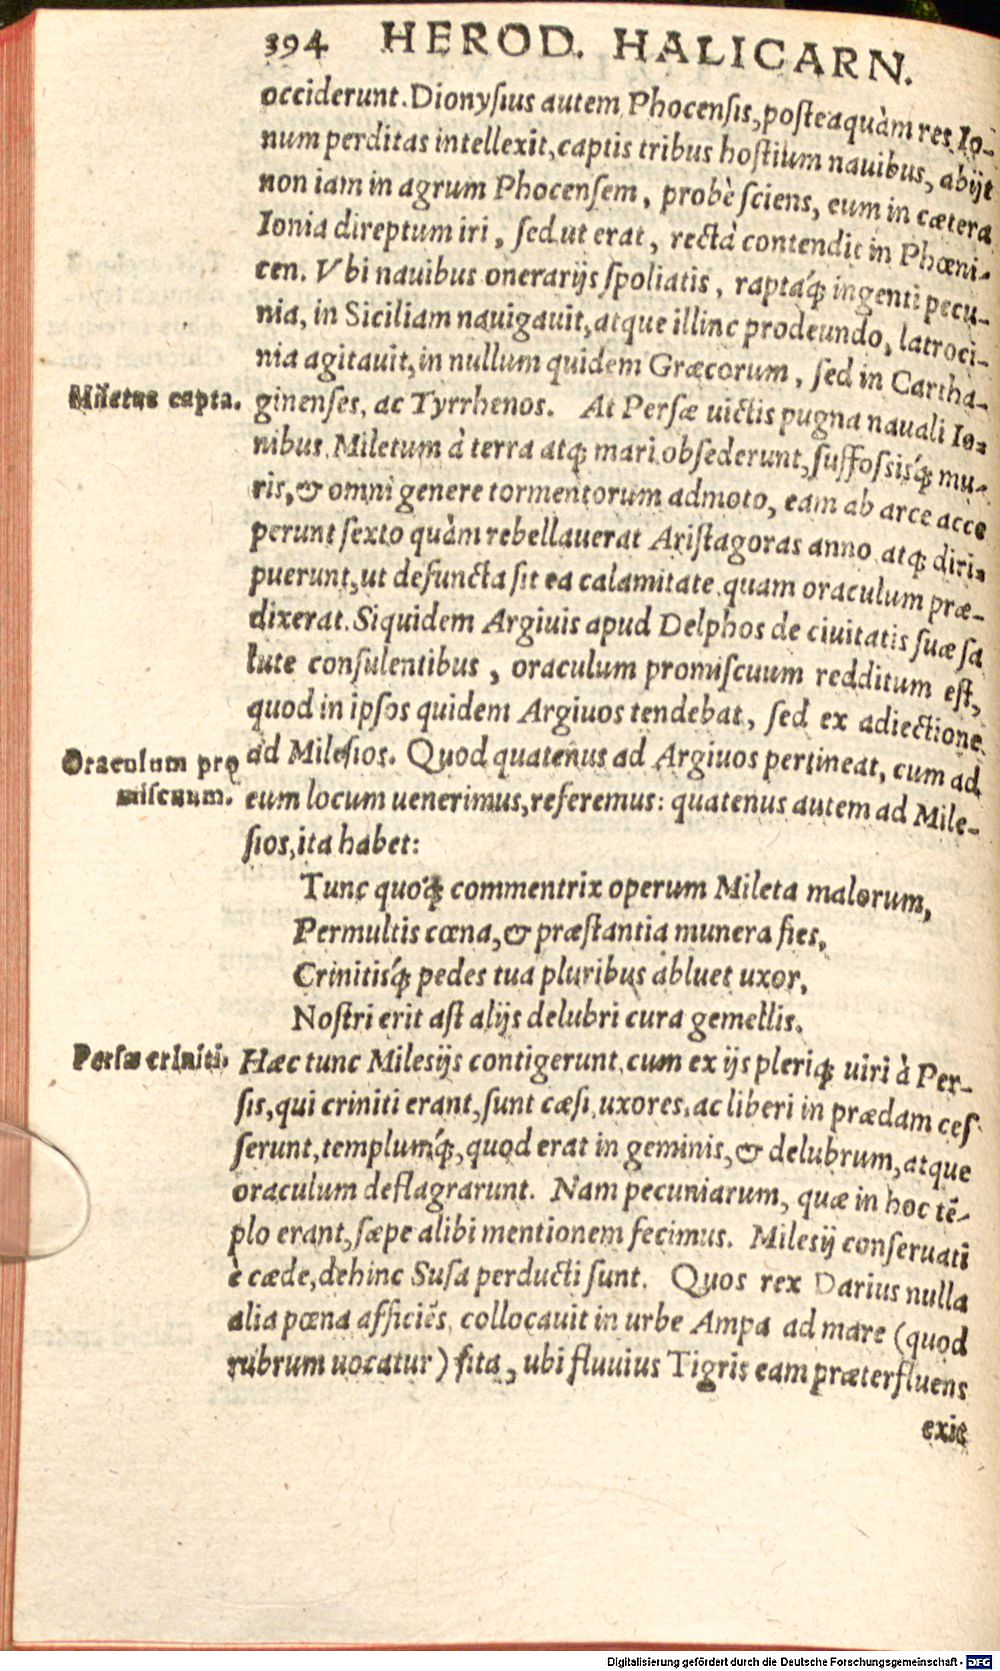 394 HEROD. HALICARN.
occiderunt. Dionyſius autem Phocenſis, poſteaquàm res Io-
num perditas intellexit, captis tribus hoſtium nauibus, abijt
non iam in agrum Phocenſem, probè ſciens, eum in cætera
Ionia direptum iri, ſed ut erat, rectà contendit in Phœni-
cen. Vbi nauibus onerarijs ſpoliatis, raptáq́; ingenti pecu-
nia, in Siciliam nauigauit, atque illinc prodeundo, latroci-
nia agitauit, in nullum quidem Græcorum, ſed in Cartha-
Miletus capta.
ginenſes, ac Tyrrhenos. At Perſæ uictis pugna nauali Io-
nibus, Miletum à terra atq; mari obſederunt, ſuffoſsisq́; mu-
ris, & omni genere tormentorum admoto, eam ab arce acce
perunt ſexto quàm rebellauerat Ariſtagoras anno, atq; diri-
puerunt, ut defuncta ſit ea calamitate, quam oraculum præ-
dixerat. Siquidem Argiuis apud Delphos de ciuitatis ſuæ ſa
lute conſulentibus, oraculum promiſcuum redditum eſt,
quod in ipſos quidem Argiuos tendebat, ſed ex adiectione
Oraculum pro
miſcuum.
ad Mileſios. Quod quatenus ad Argiuos pertineat, cum ad
eum locum uenerimus, referemus: quatenus autem ad Mile-
ſios, ita habet:
Tunc quoq́; commentrix operum Mileta malorum,
Permultis cœna, & præſtantia munera fies,
Crinitisq́; pedes tua pluribus abluet uxor,
Noſtri erit aſt alijs delubri cura gemellis.
Perſæ criniti.
Hæc tunc Mileſijs contigerunt, cum ex ijs pleriq; uiri à Per-
ſis, qui criniti erant, ſunt cæſi, uxores, ac liberi in prædam ceſ
ſerunt, templumq́;, quod erat in geminis, & delubrum, atque
oraculum deflagrarunt. Nam pecuniarum, quæ in hoc tē-
plo erant, ſæpe alibi mentionem fecimus. Mileſij conſeruati
è cæde, dehinc Suſa perducti ſunt. Quos rex Darius nulla
alia pœna afficiēs, collocauit in urbe Ampa ad mare (quod
rubrum uocatur) ſita, ubi fluuius Tigris eam præterfluens
exit
Digitalisierung gefördert durch die Deutsche Forschungsgemeinschaft - DFG